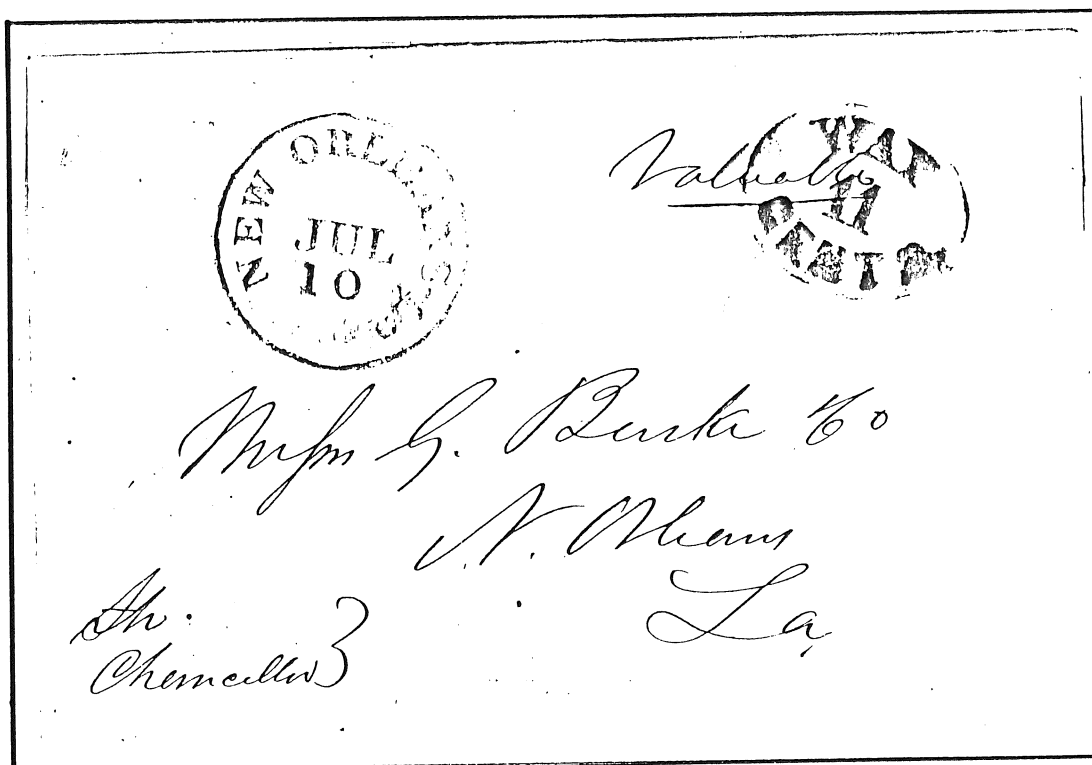 NEW ORLEANS
JUL
10
Valuable
WAY
11
Messrs G. Burke & Co
N. Orleans
La,
Sh.
Chancellor }